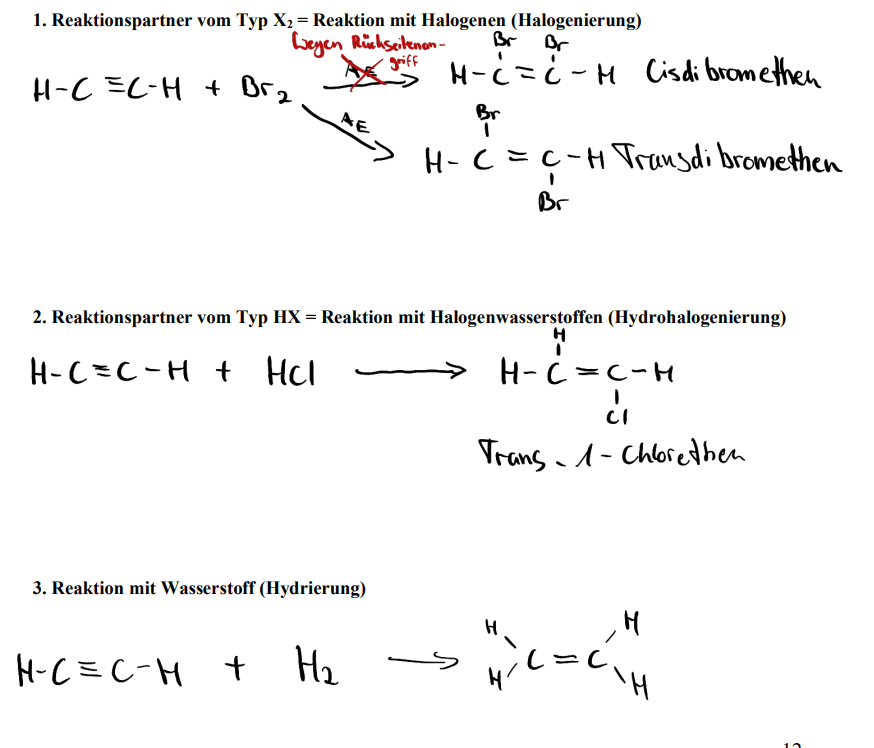 1. Reaktionspartner vom Typ X₂ = Reaktion mit Halogenen (Halogenierung)
Wegen Rückseitenan-
griff
Br Br
H-C≡C-H + Br₂ AE H-C=C-H Cisdibromethen
Br
AE
H-C=C-H Transdibromethen
Br
2. Reaktionspartner vom Typ HX = Reaktion mit Halogenwasserstoffen (Hydrohalogenierung)
H
H-C≡C-H + HCl → H-C=C-H
Cl
Trans-1-Chlorethen
3. Reaktion mit Wasserstoff (Hydrierung)
H H
H-C≡C-H + H₂ → C=C
H H